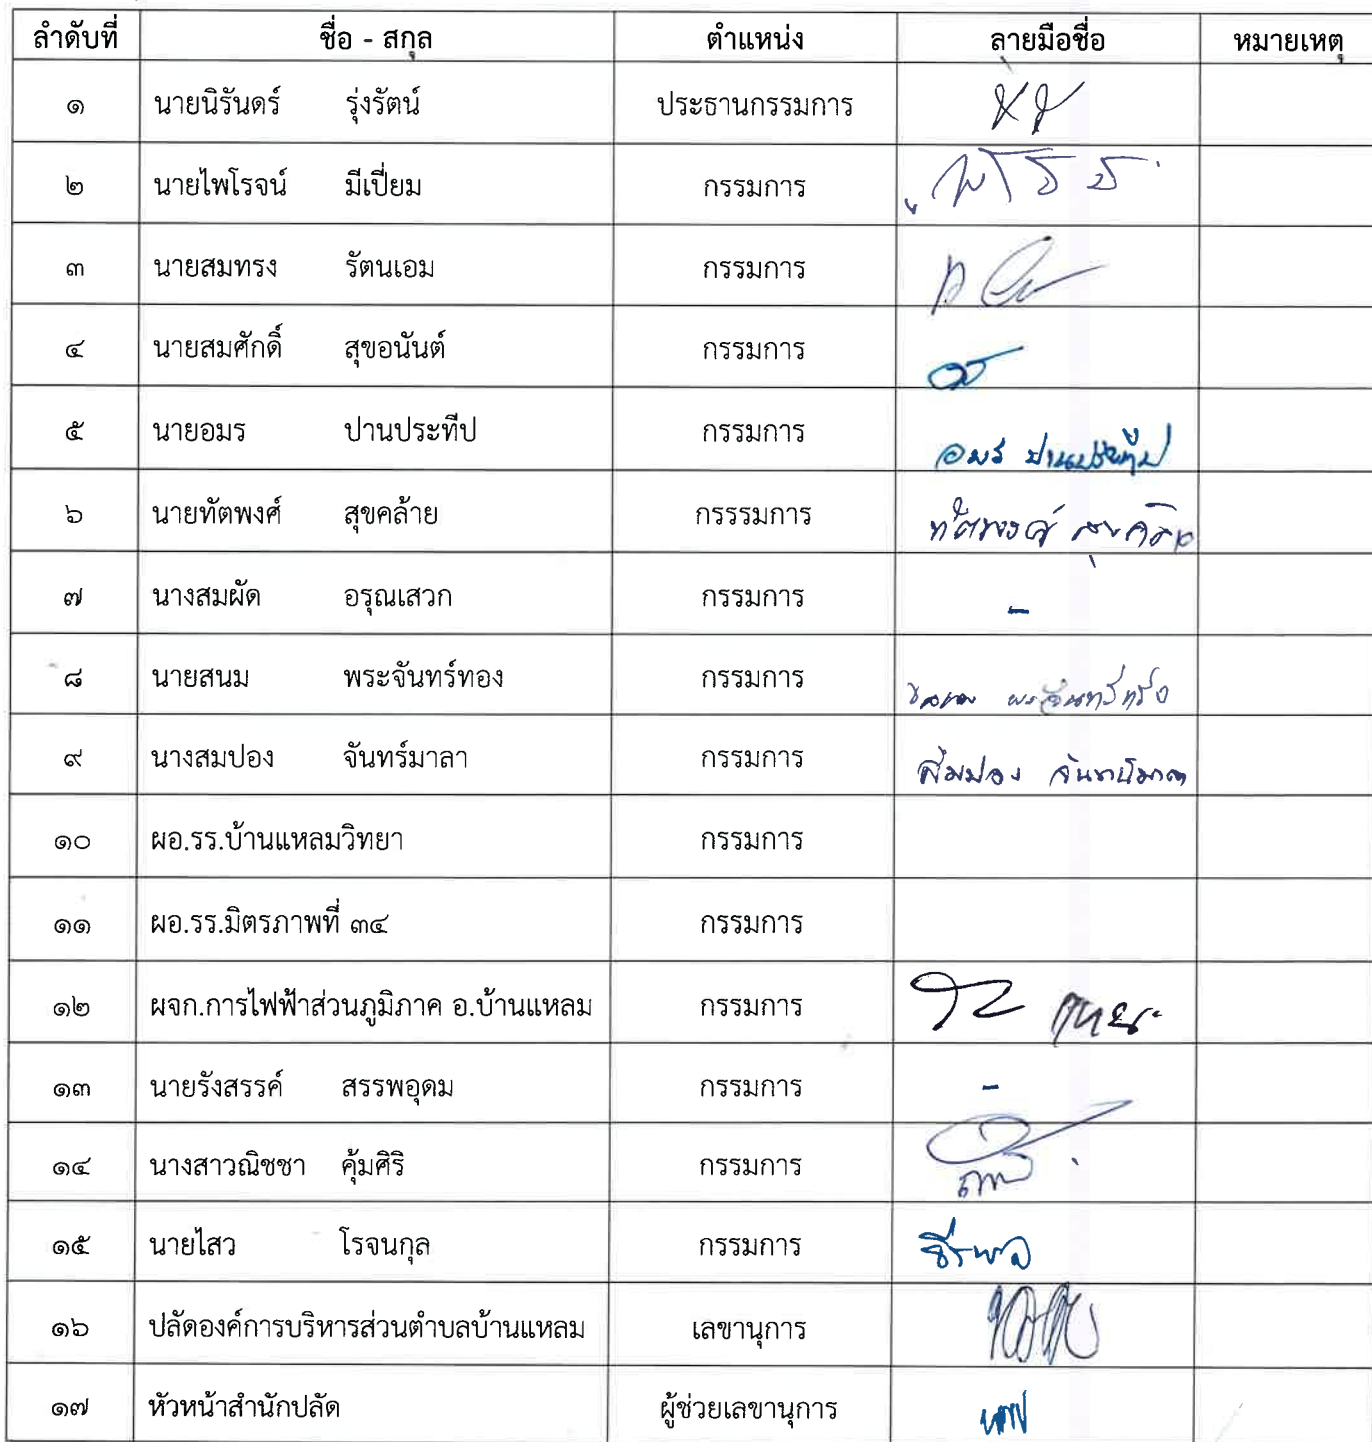 ลำดับที่ ชื่อ - สกุล ตำแหน่ง ลายมือชื่อ หมายเหตุ
๑ นายนิรันดร์ รุ่งรัตน์ ประธานกรรมการ
๒ นายไพโรจน์ มีเปี่ยม กรรมการ
๓ นายสมทรง รัตนเอม กรรมการ
๔ นายสมศักดิ์ สุขอนันต์ กรรมการ
๕ นายอมร ปานประทีป กรรมการ อมร ปานประทีป
๖ นายทัตพงศ์ สุขคล้าย กรรรมการ ทัตพงศ์ สุขคล้าย
๗ นางสมผัด อรุณเสวก กรรมการ -
๘ นายสนม พระจันทร์ทอง กรรมการ พระจันทร์ทอง
๙ นางสมปอง จันทร์มาลา กรรมการ สมปอง จันทร์มาลา
๑๐ ผอ.รร.บ้านแหลมวิทยา กรรมการ
๑๑ ผอ.รร.มิตรภาพที่ ๓๔ กรรมการ
๑๒ ผจก.การไฟฟ้าส่วนภูมิภาค อ.บ้านแหลม กรรมการ
๑๓ นายรังสรรค์ สรรพอุดม กรรมการ -
๑๔ นางสาวณิชชา คุ้มศิริ กรรมการ
๑๕ นายไสว โรจนกุล กรรมการ
๑๖ ปลัดองค์การบริหารส่วนตำบลบ้านแหลม เลขานุการ
๑๗ หัวหน้าสำนักปลัด ผู้ช่วยเลขานุการ